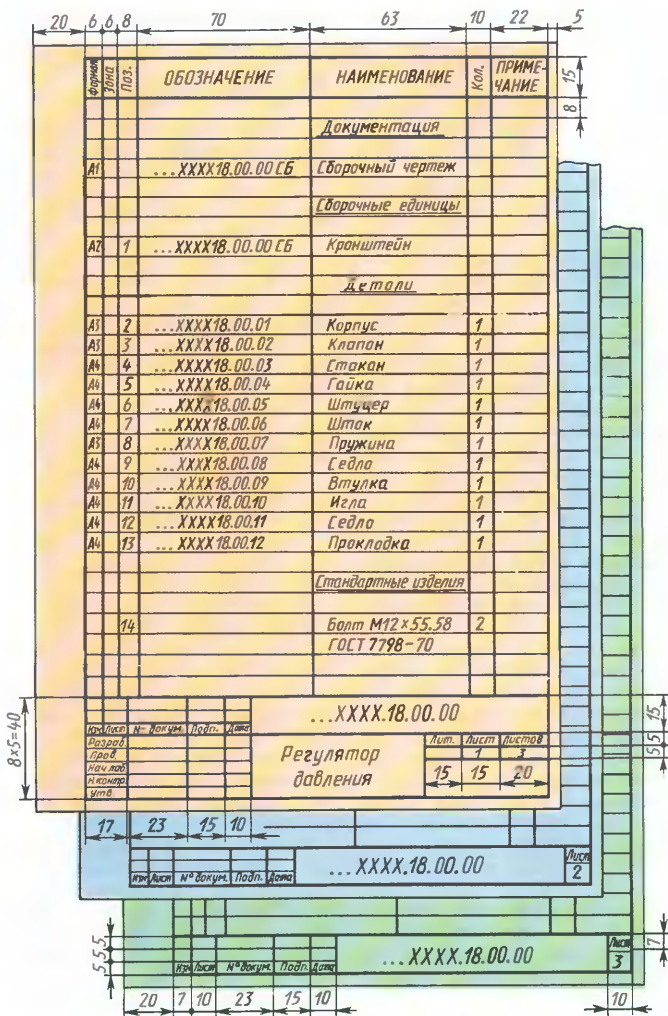 20 6 6 8 70 63 10 22 5
Формат Зона Поз. ОБОЗНАЧЕНИЕ НАИМЕНОВАНИЕ Кол. ПРИМЕ-
ЧАНИЕ 15
8
Документация
А1 ...XXXX18.00.00 СБ Сборочный чертеж
Сборочные единицы
А2 1 ...XXXX18.00.00 СБ Кронштейн
Детали
А3 2 ...XXXX18.00.01 Корпус 1
А3 3 ...XXXX18.00.02 Клапан 1
А4 4 ...XXXX18.00.03 Стакан 1
А4 5 ...XXXX18.00.04 Гайка 1
А4 6 ...XXXX18.00.05 Штуцер 1
А4 7 ...XXXX18.00.06 Шток 1
А3 8 ...XXXX18.00.07 Пружина 1
А4 9 ...XXXX18.00.08 Седло 1
А4 10 ...XXXX18.00.09 Втулка 1
А4 11 ...XXXX18.00.10 Игла 1
А4 12 ...XXXX18.00.11 Седло 1
А4 13 ...XXXX18.00.12 Прокладка 1
Стандартные изделия
14 Болт М12×55.58 2
ГОСТ 7798-70
8×5=40 ...XXXX.18.00.00 15
Изм Лист № докум. Подп. Дата
Разраб. Регулятор Лит. Лист Листов 5
Пров. 1 3 5
Нач. лаб. давления 15 15 20
Н.контр.
Утв.
17 23 15 10
...XXXX.18.00.00 Лист
Изм Лист № докум. Подп. Дата 2
5 5 5 ...XXXX.18.00.00 Лист 7
Изм Лист № докум. Подп. Дата 3
20 7 10 23 15 10 10